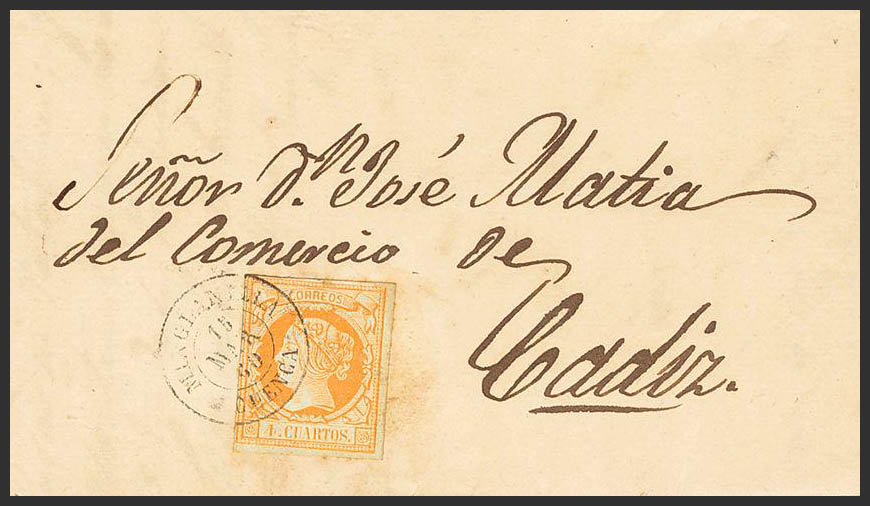 Señor d.n José Matia
del Comercio de
Cadiz.
CORREOS
4. CUARTOS.
MINGLANILLA
MAR
60
CUENCA